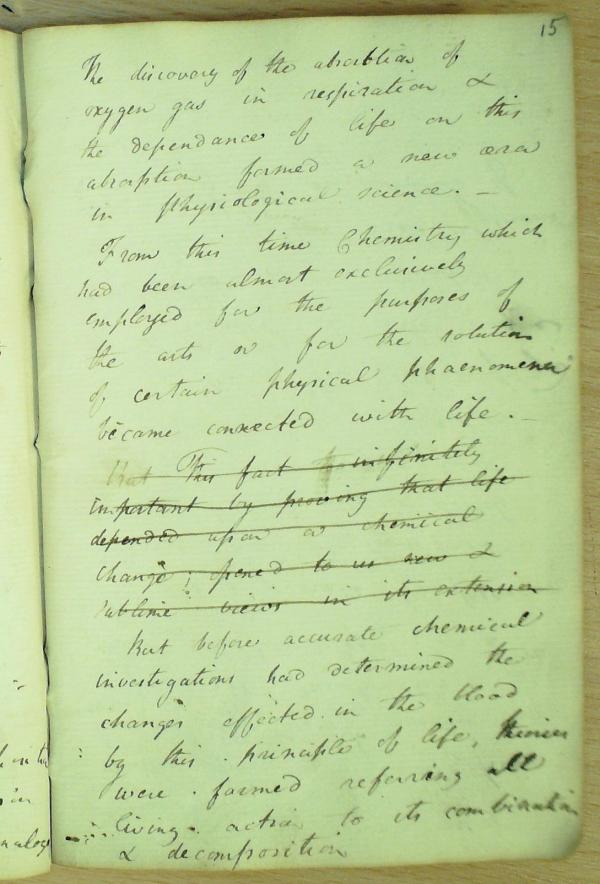 15
The discovery of the absorbtion of
oxygen gas in respiration &
the dependance of life on this
absorption formed a new æra
in physiological science. –
From this time Chemistry which
had been almost exclusively
employed for the purposes of
the arts or for the solution
of certain physical phaenomena
became connected with life. –
that This fact infinitely
important by proving that life
depended upon a chemical
change; opened to us new &
sublime views in its extension
But before accurate chemical
investigations had determined the
changes effected in the blood
by this principle of life, theories
were formed referring all
living action to its combination
& decomposition